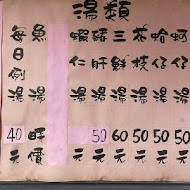 湯類
蚵仔湯50元
蛤仔湯50元
花枝湯50元
三鮮湯60元
豬肝湯50元
蝦仁湯
魚湯时價
每日例湯40元